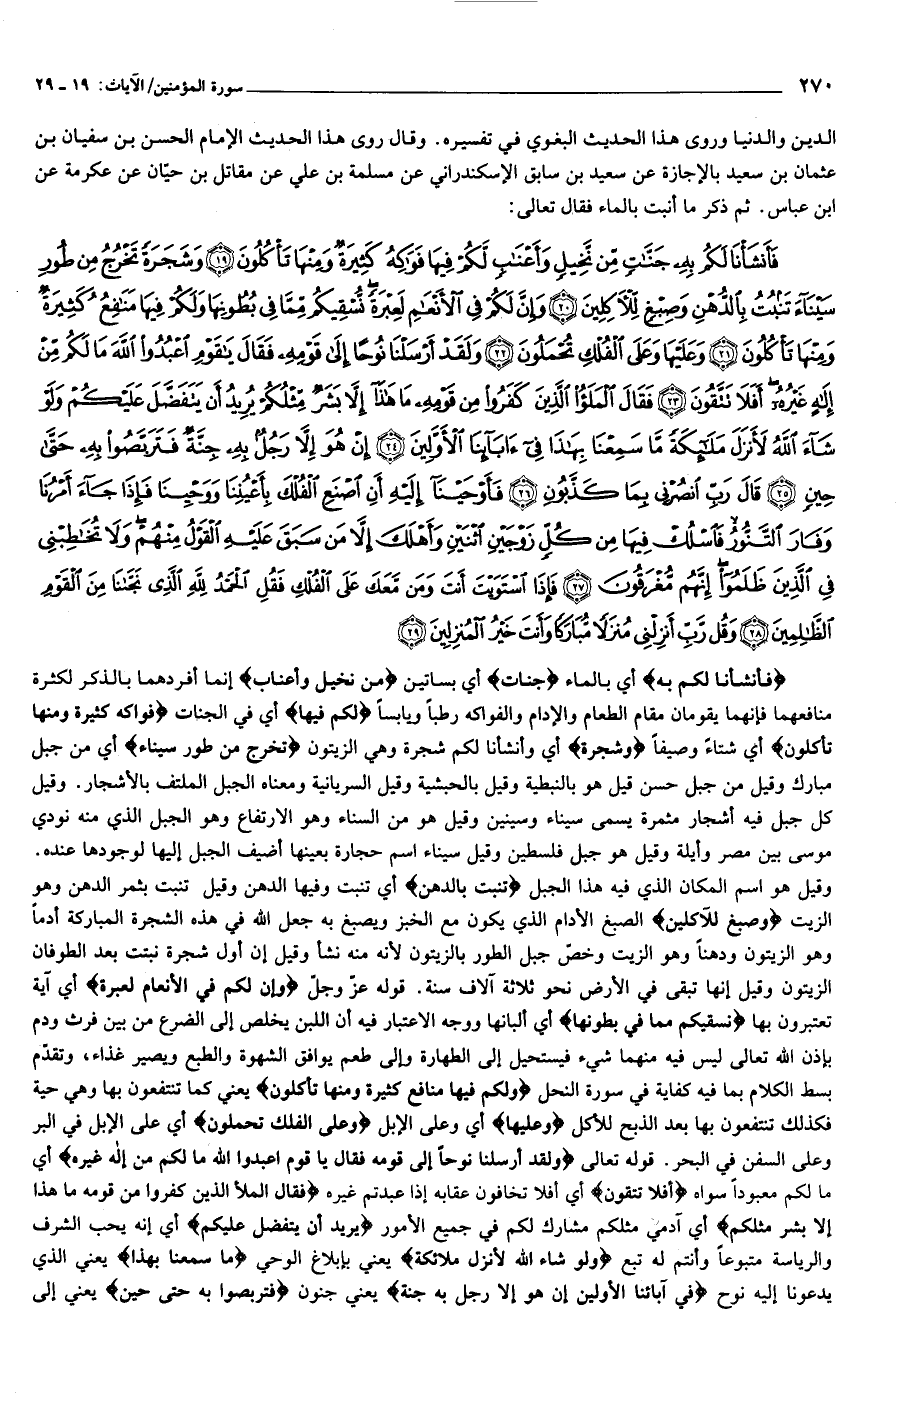 ٢٧٠ سورة المؤمنين/ الآيات: ١٩ - ٢٩
الدين والدنيا وروى هذا الحديث البغوي في تفسيره. وقال روى هذا الحديث الإمام الحسن بن سفيان بن
عثمان بن سعيد بالإجازة عن سعيد بن سابق الإسكندراني عن مسلمة بن علي عن مقاتل بن حيّان عن عكرمة عن
ابن عباس. ثم ذكر ما أنبت بالماء فقال تعالى:
فَأَنشَأْنَا لَكُم بِهِ جَنَّاتٍ مِّن نَّخِيلٍ وَأَعْنَابٍ لَّكُمْ فِيهَا فَوَاكِهُ كَثِيرَةٌ وَمِنْهَا تَأْكُلُونَ ﴿١٩﴾ وَشَجَرَةً تَخْرُجُ مِن طُورِ
سَيْنَاءَ تَنْبُتُ بِالدُّهْنِ وَصِبْغٍ لِّلْآكِلِينَ ﴿٢٠﴾ وَإِنَّ لَكُمْ فِي الْأَنْعَامِ لَعِبْرَةً نُّسْقِيكُم مِّمَّا فِي بُطُونِهَا وَلَكُمْ فِيهَا مَنَافِعُ كَثِيرَةٌ
وَمِنْهَا تَأْكُلُونَ ﴿٢١﴾ وَعَلَيْهَا وَعَلَى الْفُلْكِ تُحْمَلُونَ ﴿٢٢﴾ وَلَقَدْ أَرْسَلْنَا نُوحًا إِلَىٰ قَوْمِهِ فَقَالَ يَا قَوْمِ اعْبُدُوا اللَّهَ مَا لَكُم مِّنْ
إِلَٰهٍ غَيْرُهُ أَفَلَا تَتَّقُونَ ﴿٢٣﴾ فَقَالَ الْمَلَأُ الَّذِينَ كَفَرُوا مِن قَوْمِهِ مَا هَٰذَا إِلَّا بَشَرٌ مِّثْلُكُمْ يُرِيدُ أَن يَتَفَضَّلَ عَلَيْكُمْ وَلَوْ
شَاءَ اللَّهُ لَأَنزَلَ مَلَائِكَةً مَّا سَمِعْنَا بِهَٰذَا فِي آبَائِنَا الْأَوَّلِينَ ﴿٢٤﴾ إِنْ هُوَ إِلَّا رَجُلٌ بِهِ جِنَّةٌ فَتَرَبَّصُوا بِهِ حَتَّىٰ
حِينٍ ﴿٢٥﴾ قَالَ رَبِّ انصُرْنِي بِمَا كَذَّبُونِ ﴿٢٦﴾ فَأَوْحَيْنَا إِلَيْهِ أَنِ اصْنَعِ الْفُلْكَ بِأَعْيُنِنَا وَوَحْيِنَا فَإِذَا جَاءَ أَمْرُنَا
وَفَارَ التَّنُّورُ فَاسْلُكْ فِيهَا مِن كُلٍّ زَوْجَيْنِ اثْنَيْنِ وَأَهْلَكَ إِلَّا مَن سَبَقَ عَلَيْهِ الْقَوْلُ مِنْهُمْ وَلَا تُخَاطِبْنِي
فِي الَّذِينَ ظَلَمُوا إِنَّهُم مُّغْرَقُونَ ﴿٢٧﴾ فَإِذَا اسْتَوَيْتَ أَنتَ وَمَن مَّعَكَ عَلَى الْفُلْكِ فَقُلِ الْحَمْدُ لِلَّهِ الَّذِي نَجَّانَا مِنَ الْقَوْمِ
الظَّالِمِينَ ﴿٢٨﴾ وَقُل رَّبِّ أَنزِلْنِي مُنزَلًا مُّبَارَكًا وَأَنتَ خَيْرُ الْمُنزِلِينَ ﴿٢٩﴾
﴿فأنشأنا لكم به﴾ أي بالماء ﴿جنات﴾ أي بساتين ﴿من نخيل وأعناب﴾ إنما أفردهما بالذكر لكثرة
منافعهما فإنهما يقومان مقام الطعام والإدام والفواكه رطباً ويابساً ﴿لكم فيها﴾ أي في الجنات ﴿فواكه كثيرة ومنها
تأكلون﴾ أي شتاءً وصيفاً ﴿وشجرة﴾ أي وأنشأنا لكم شجرة وهي الزيتون ﴿تخرج من طور سيناء﴾ أي من جبل
مبارك وقيل من جبل حسن قيل هو بالنبطية وقيل بالحبشية وقيل السريانية ومعناه الجبل الملتف بالأشجار. وقيل
كل جبل فيه أشجار مثمرة يسمى سيناء وسينين وقيل هو من السناء وهو الارتفاع وهو الجبل الذي منه نودي
موسى بين مصر وأيلة وقيل هو جبل فلسطين وقيل سيناء اسم حجارة بعينها أضيف الجبل إليها لوجودها عنده.
وقيل هو اسم المكان الذي فيه هذا الجبل ﴿تنبت بالدهن﴾ أي تنبت وفيها الدهن وقيل تنبت بثمر الدهن وهو
الزيت ﴿وصبغ للآكلين﴾ الصبغ الأدام الذي يكون مع الخبز ويصبغ به جعل الله في هذه الشجرة المباركة أدماً
وهو الزيتون ودهناً وهو الزيت وخصّ جبل الطور بالزيتون لأنه منه نشأ وقيل إن أول شجرة نبتت بعد الطوفان
الزيتون وقيل إنها تبقى في الأرض نحو ثلاثة آلاف سنة. قوله عزّ وجلّ ﴿وإن لكم في الأنعام لعبرة﴾ أي آية
تعتبرون بها ﴿نسقيكم مما في بطونها﴾ أي ألبانها ووجه الاعتبار فيه أن اللبن يخلص إلى الضرع من بين فرث ودم
بإذن الله تعالى ليس فيه منهما شيء فيستحيل إلى الطهارة وإلى طعم يوافق الشهوة والطبع ويصير غذاء، وتقدّم
بسط الكلام بما فيه كفاية في سورة النحل ﴿ولكم فيها منافع كثيرة ومنها تأكلون﴾ يعني كما تنتفعون بها وهي حية
فكذلك تنتفعون بها بعد الذبح للأكل ﴿وعليها﴾ أي وعلى الإبل ﴿وعلى الفلك تحملون﴾ أي على الإبل في البر
وعلى السفن في البحر. قوله تعالى ﴿ولقد أرسلنا نوحاً إلى قومه فقال يا قوم اعبدوا الله ما لكم من إله غيره﴾ أي
ما لكم معبوداً سواه ﴿أفلا تتقون﴾ أي أفلا تخافون عقابه إذا عبدتم غيره ﴿فقال الملأ الذين كفروا من قومه ما هذا
إلا بشر مثلكم﴾ أي آدمي مثلكم مشارك لكم في جميع الأمور ﴿يريد أن يتفضل عليكم﴾ أي إنه يحب الشرف
والرياسة متبوعاً وأنتم له تبع ﴿ولو شاء الله لأنزل ملائكة﴾ يعني بإبلاغ الوحي ﴿ما سمعنا بهذا﴾ يعني الذي
يدعونا إليه نوح ﴿في آبائنا الأولين إن هو إلا رجل به جنة﴾ يعني جنون ﴿فتربصوا به حتى حين﴾ يعني إلى